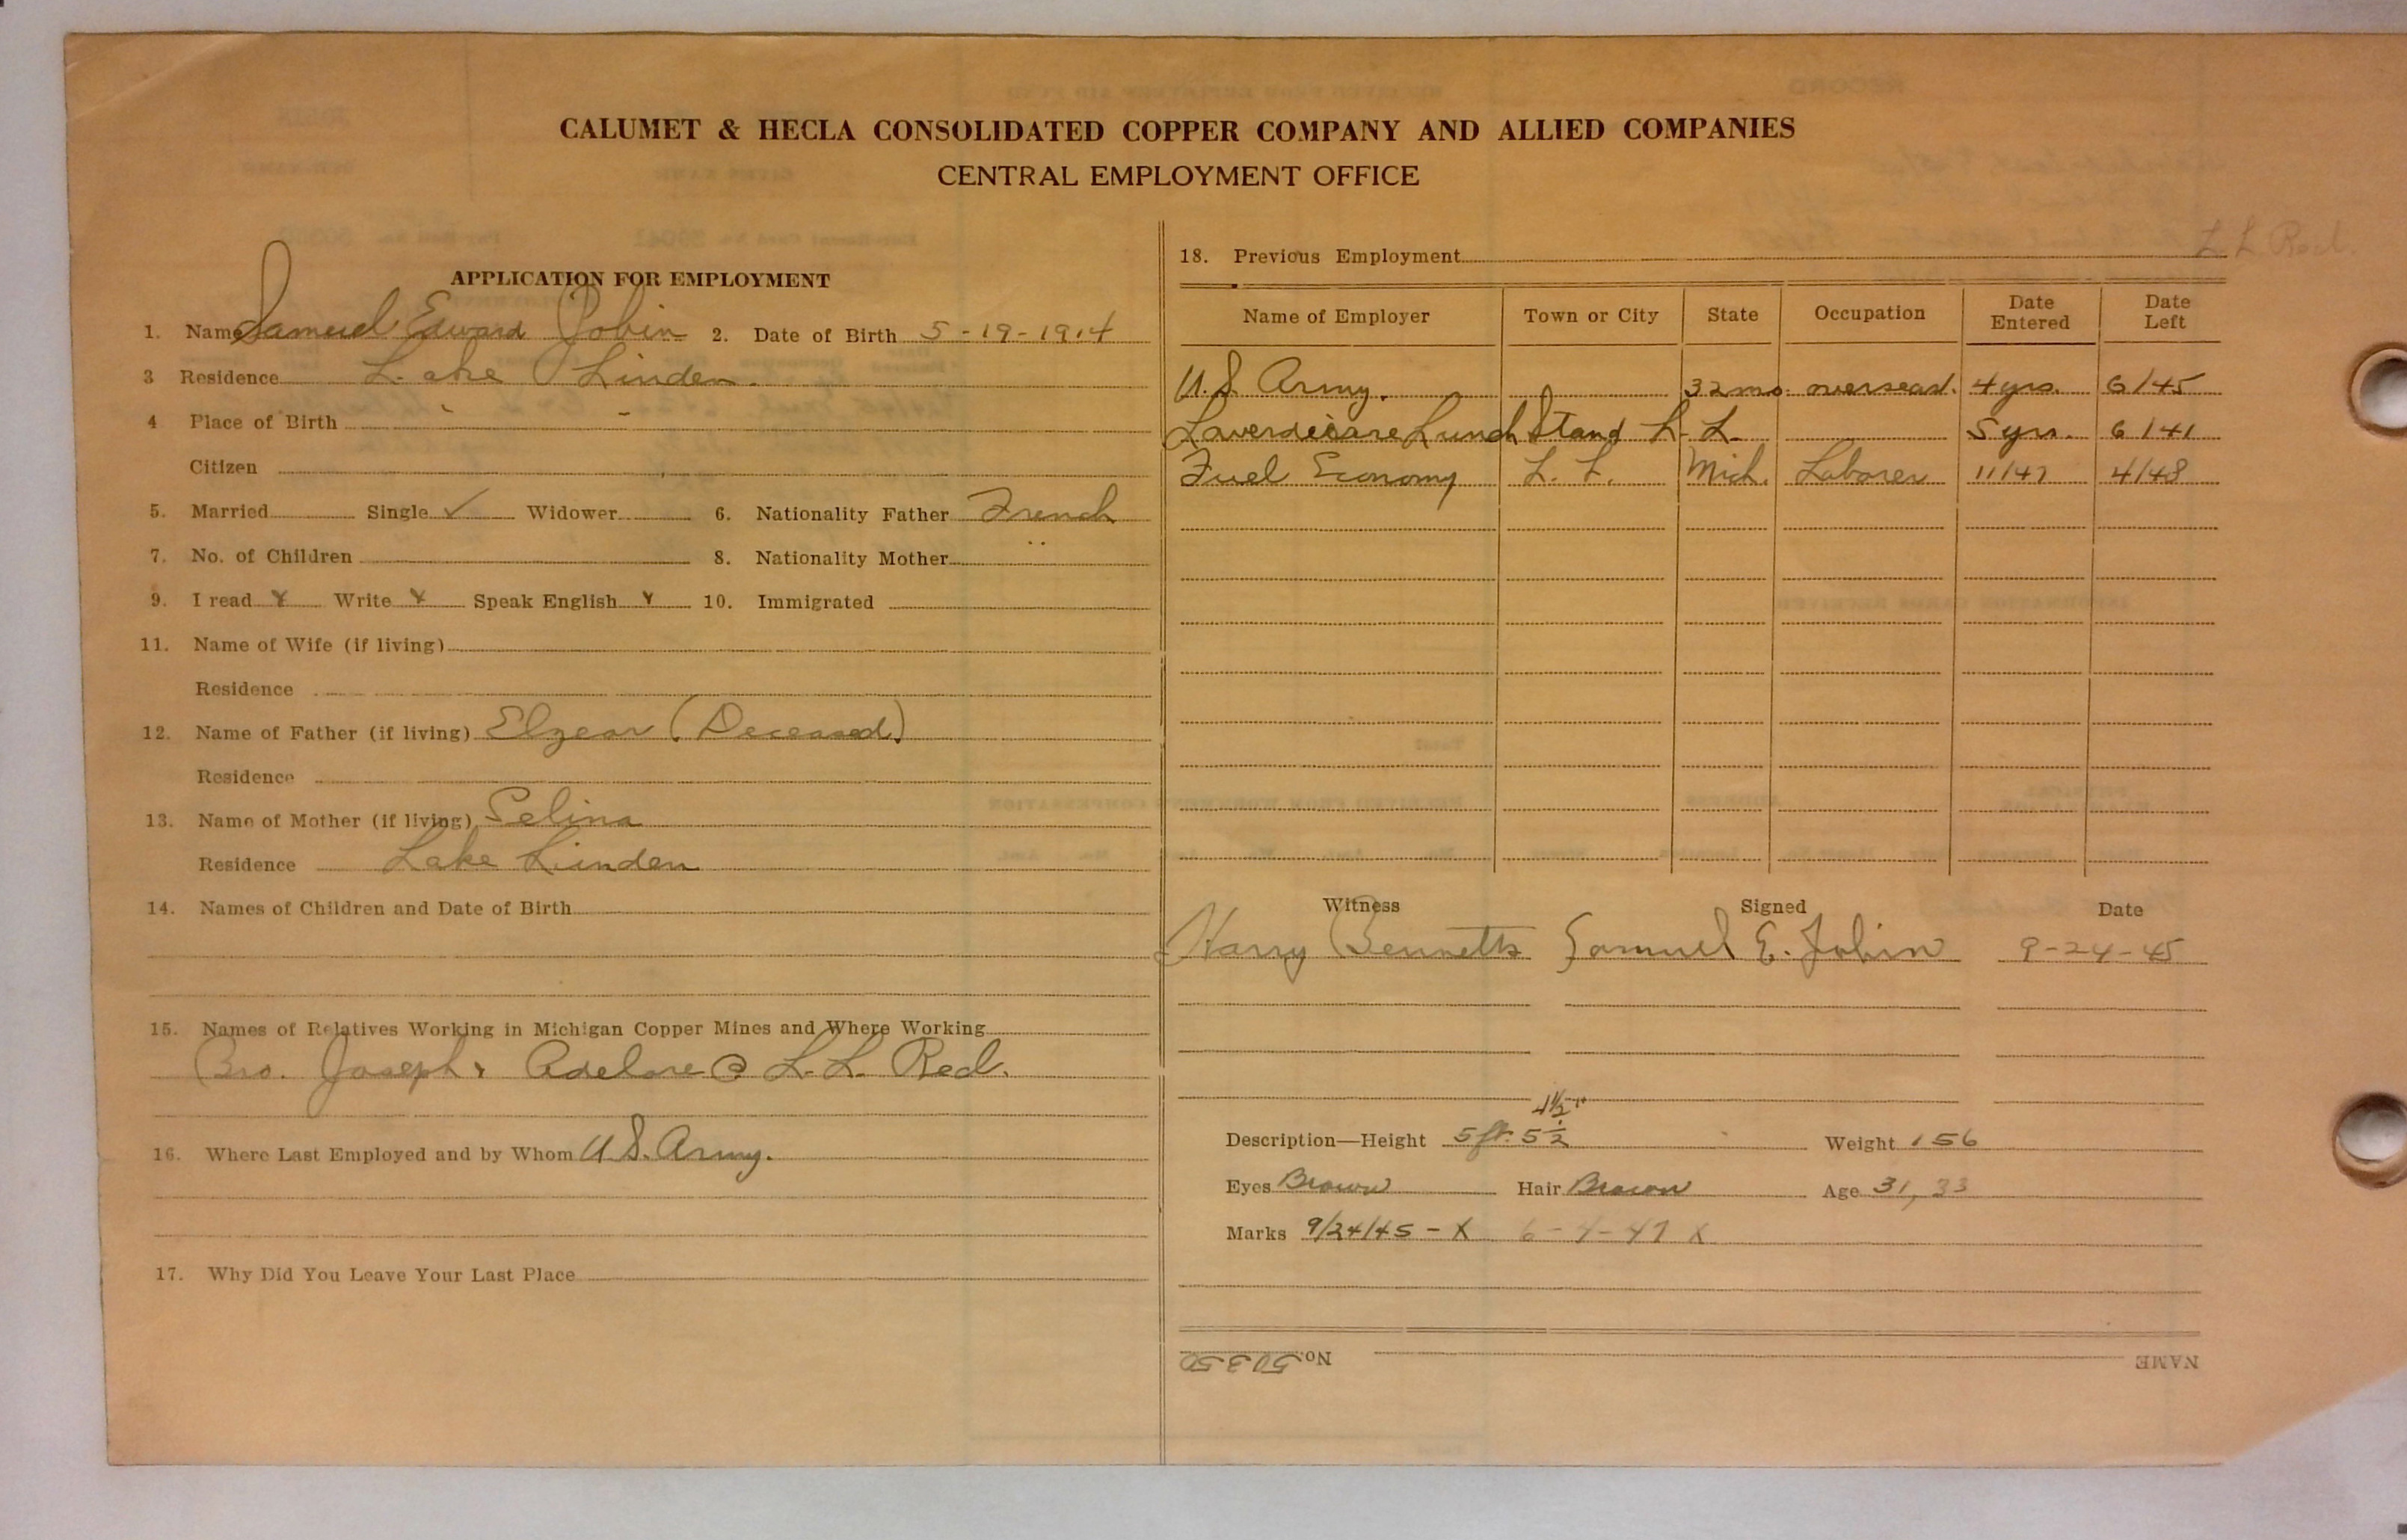 CALUMET & HECLA CONSOLIDATED COPPER COMPANY AND ALLIED COMPANIES
CENTRAL EMPLOYMENT OFFICE
APPLICATION FOR EMPLOYMENT
1. Name Samuel Edward Jobin 2. Date of Birth 5-19-1914
3 Residence Lake Linden.
4 Place of Birth " "
Citizen
5. Married Single ✓ Widower 6. Nationality Father French
7. No. of Children 8. Nationality Mother "
9. I read Y Write Y Speak English Y 10. Immigrated
11. Name of Wife (if living)
Residence
12. Name of Father (if living) Elzear (Deceased)
Residence
13. Name of Mother (if living) Selina
Residence Lake Linden
14. Names of Children and Date of Birth
15. Names of Relatives Working in Michigan Copper Mines and Where Working
Bro. Joseph & Adelore @ L.L. Recl.
16. Where Last Employed and by Whom U.S. Army.
17. Why Did You Leave Your Last Place
18. Previous Employment L L Recl.
Name of Employer Town or City State Occupation Date Entered Date Left
U.S. Army. 32 mo. overseas. 4 yrs. 6/45
Lunch Stand L. L. 5 yrs. 6/41
Fuel Economy L. L. Mich. Laborer 11/47 4/48
Witness Signed Date
Harry Bennetts Samuel E. Jobin 9-24-45
4½"
Description—Height 5 ft. 5½ Weight 156
Eyes Brown Hair Brown Age 31, 33
Marks 9/24/45 - X 6-4-47 X
No. 50350 NAME